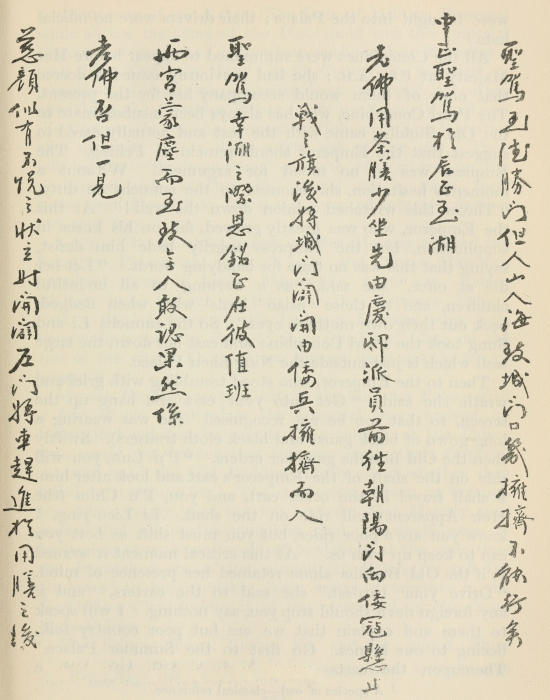 聖駕至德勝門但人山人海致城門口幾擁擠不能行矣
中正聖駕於辰正至湖
老佛用茶膳少坐先由慶邸派員前往朝陽門向倭寇懸止
戰之旗後將城門開闢由倭兵擁擠而入
聖駕幸湖際恩銘正在彼值班
此宮蒙塵而至致令人敢認果然係
老佛否但一見
慈顏似有不悅之狀立時開闢左門將車趕進於用膳之後